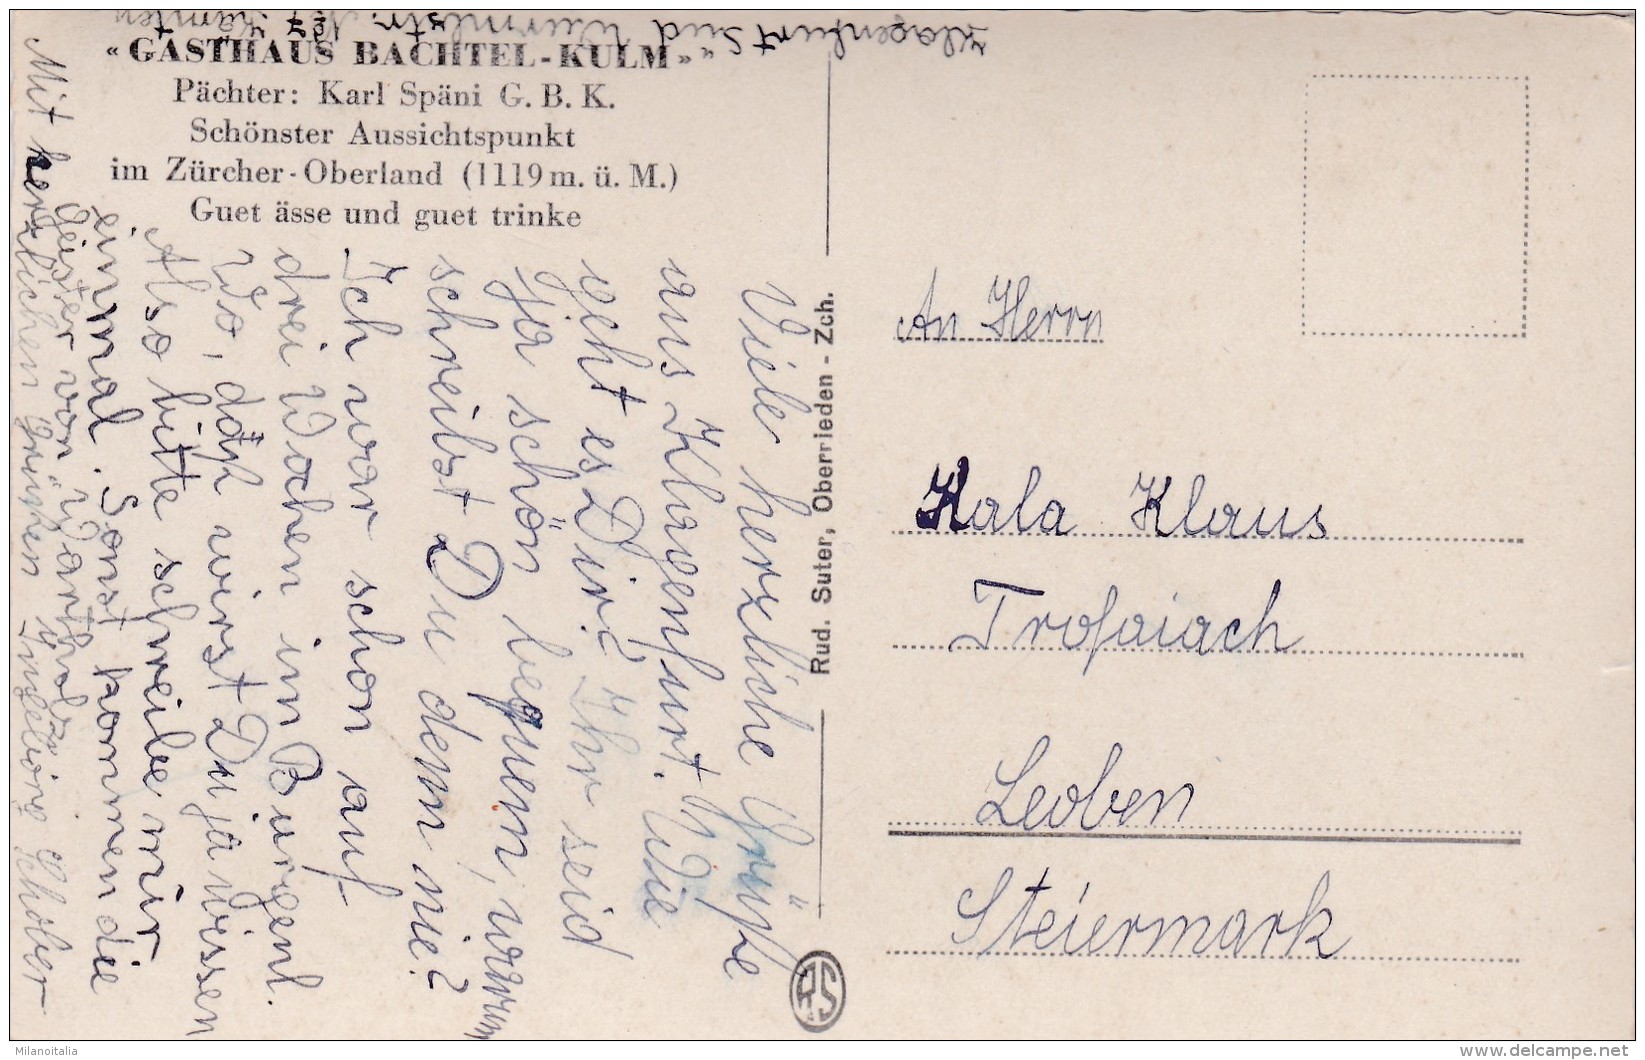 Klagenfurt Süd Wurmlstr. No 7 Kärnten
« GASTHAUS BACHTEL-KULM »
Pächter: Karl Späni G. B. K.
Schönster Aussichtspunkt
im Zürcher-Oberland (1119 m. ü. M.)
Guet ässe und guet trinke
Viele herzliche Grüße
aus Klagenfurt. Wie
geht es Dir? Ihr seid
ja schön bequem, warum
schreibst Du denn nie?
Ich war schon auf
drei Wochen in Burgenl.
Wo, daß wirst Du ja wissen
Also bitte schreibe mir
einmal. Sonst kommen die
Geister von
Mit herzlichen Grüßen Ingeborg Schober
Rud. Suter, Oberrieden - Zch.
RS
An Herrn
Kala Klaus
Trofaiach
Leoben
Steiermark
Milanoitalia
delcampe.net